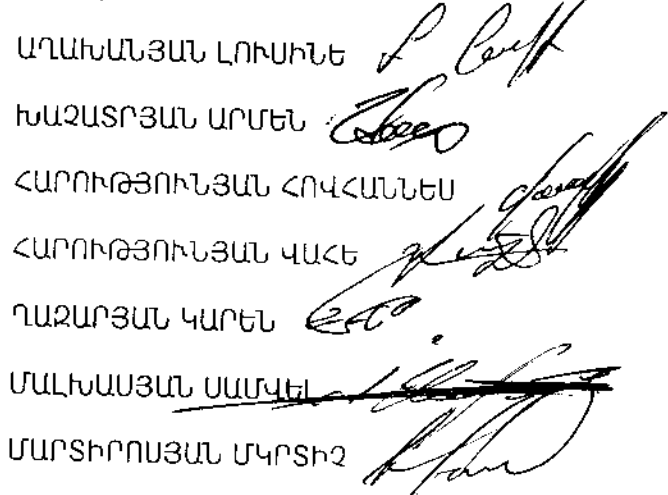 ԱՂԱԽԱՆՅԱՆ ԼՈՒՍԻՆԵ
ԽԱՉԱՏՐՅԱՆ ԱՐՄԵՆ
ՀԱՐՈՒԹՅՈՒՆՅԱՆ ՀՈՎՀԱՆՆԵՍ
ՀԱՐՈՒԹՅՈՒՆՅԱՆ ՎԱՀԵ
ՂԱԶԱՐՅԱՆ ԿԱՐԵՆ
ՄԱԼԽԱՍՅԱՆ ՍԱՄՎԵԼ
ՄԱՐՏԻՐՈՍՅԱՆ ՄԿՐՏԻՉ